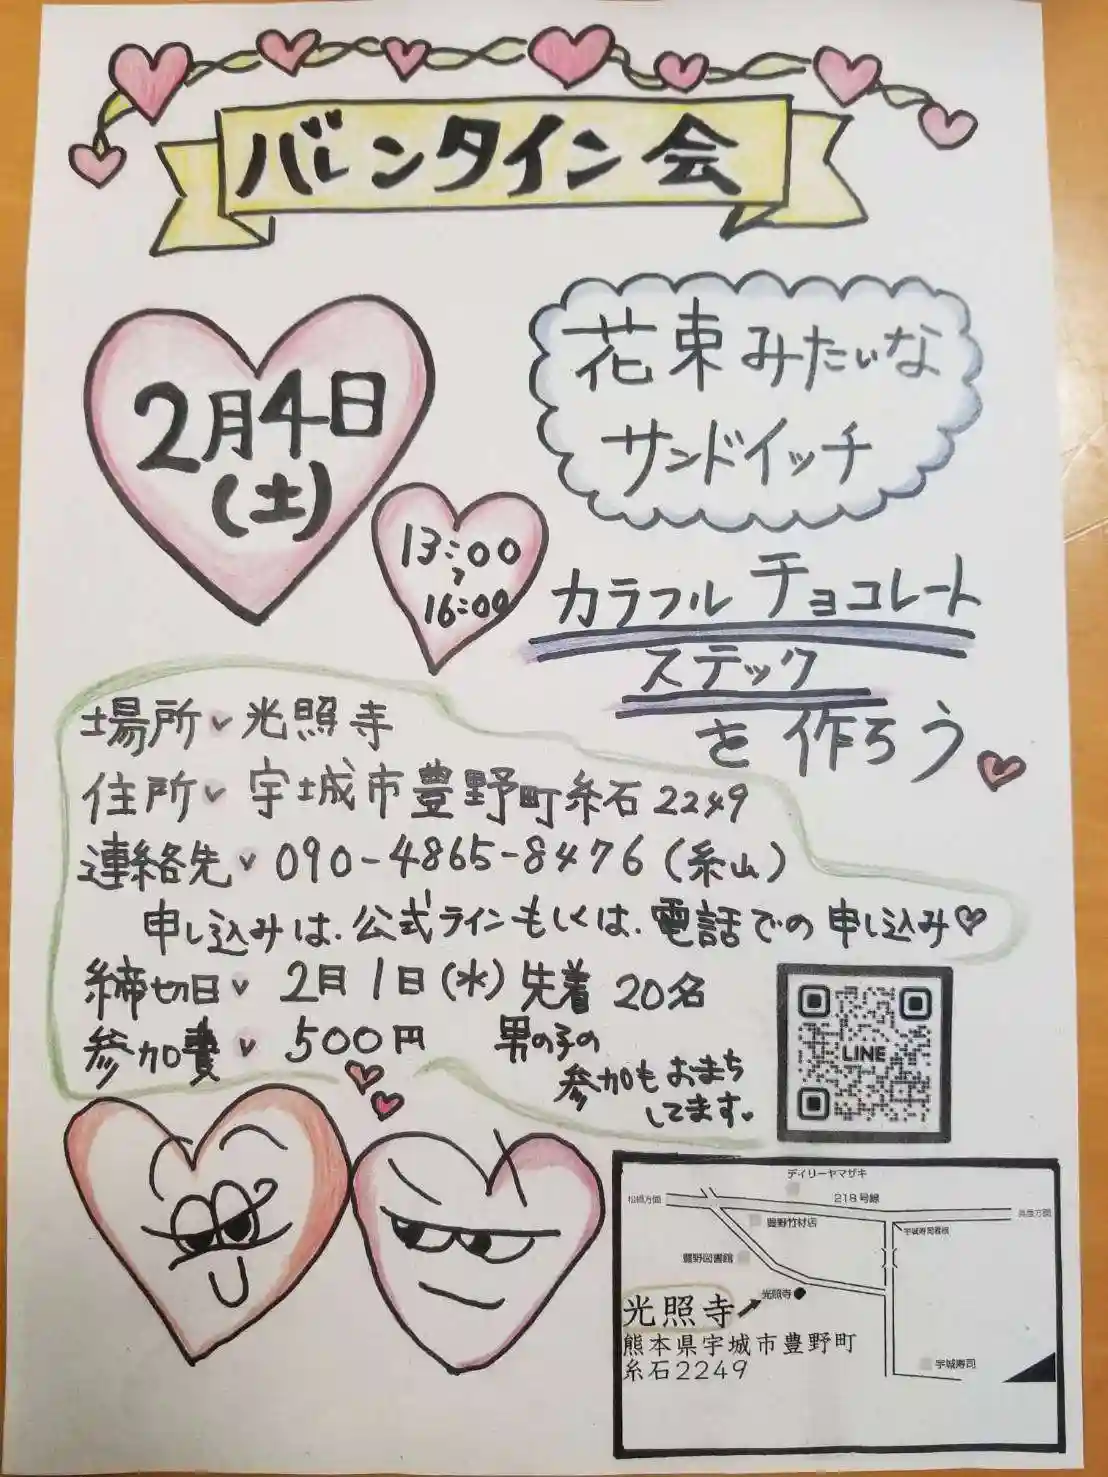 バレンタイン会
2月4日
(土)
13:00
〜
16:00
花束みたいな
サンドイッチ
カラフルチョコレート
ステック
を作ろう
場所 光照寺
住所 宇城市豊野町糸石2249
連絡先 090-4865-8476(糸山)
申し込みは、公式ラインもしくは、電話での申し込み
締切日 2月1日(水)先着20名
参加費 500円 男の子の
参加もおまち
してます。
LINE
デイリーヤマザキ
松橋方面
218号線
豊野竹材店
豊野図書館
光照寺
光照寺
熊本県宇城市豊野町
糸石2249
宇城寿司